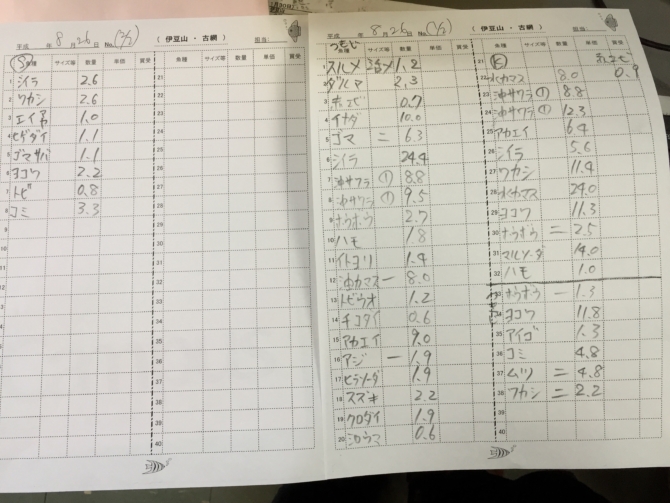 平成 年 8月 26日 No.(2/2) (伊豆山・古網) 担当:
魚種 サイズ等 数量 単価 買受 魚種 サイズ等 数量 単価 買受
1 シイラ 2.6
2 ワカシ 2.6
3 エイ 1.0
4 ヒゲダイ 1.1
5 ゴマサバ 1.1
6 ヨコワ 2.2
7 トビ 0.8
8 コミ 3.3
平成 年 8月 26日 No.(1/2) (伊豆山・古網) 担当:
魚種 サイズ等 数量 単価 買受
1 スルメ 1.2
2 ダルマ 2.3
3 0.7
4 イナダ 10.0
5 ゴマ 二 6.3
6 シイラ 24.4
7 沖サワラ ① 8.8
8 沖サワラ ① 9.5
9 ホウボウ 2.7
10 ハモ 1.8
11 イトヨリ 1.4
12 沖カマス 一 8.0
13 トビウオ 1.2
14 チコダイ 0.6
15 アカエイ 9.0
16 アジ 一 1.9
17 ヒラソーダ 1.9
18 スズキ 2.2
19 クロダイ 1.9
20 0.6
魚種 サイズ等 数量 単価 買受
21 0.9
22 水カマス 8.0
23 沖サワラ ① 8.8
24 沖サワラ ① 12.3
25 アカエイ 6.4
26 シイラ 5.6
27 ワカシ 11.4
28 水カマス 24.0
29 ヨコワ 11.3
30 ホウボウ 二 2.5
31 マルソーダ 14.0
32 ハモ 1.0
33 ホウボウ 一 1.3
34 ヨコワ 11.8
35 アイゴ 1.3
36 コミ 4.8
37 ムツ 二 4.8
38 ワカシ 二 2.2
39
40